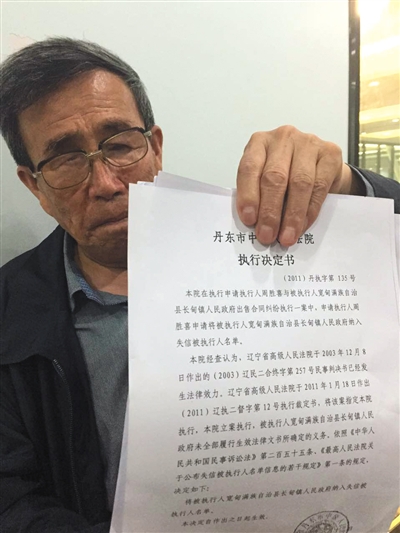 丹东市中 法院
执行决定书
(2011)丹执字第135号
本院在执行申请执行人周胜喜与被执行人宽甸满族自治
县长甸镇人民政府出售合同纠纷执行一案中，申请执行人周
胜喜申请将被执行人宽甸满族自治县长甸镇人民政府纳入
失信被执行人名单。
本院经审查认为，辽宁省高级人民法院于2003年12月8
日作出的(2003)辽民二合终字第257号民事判决书已经发
生法律效力。辽宁省高级人民法院于2011年1月18日作出
(2011)辽执二督字第12号执行裁定书，将该案指定本院
执行。本院立案执行，被执行人宽甸满族自治县长甸镇人民
政府未全部履行生效法律文书所确定的义务。依照《中华人
民共和国民事诉讼法》第二百五十五条、《最高人民法院关
于公布失信被执行人名单信息的若干规定》第一条的规定，
决定如下：
将被执行人宽甸满族自治县长甸镇人民政府纳入失信被
执行人名单。
本决定自作出之日起生效。